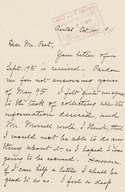 Amlet Oct 14, 9
Dear Mr. Peet,
Your letter of
Sept. 15 is received. Pardon
me for not answering yours
of May 9th I felt quite unequal
to the task of collecting all the
information desired and
Mr. Merrill wrote, I think, saying
I would not be able to do any
thing about it, as I hoped I was
going to be excused. However
if I can help a little, I shall be
glad to do so. I feel so deep